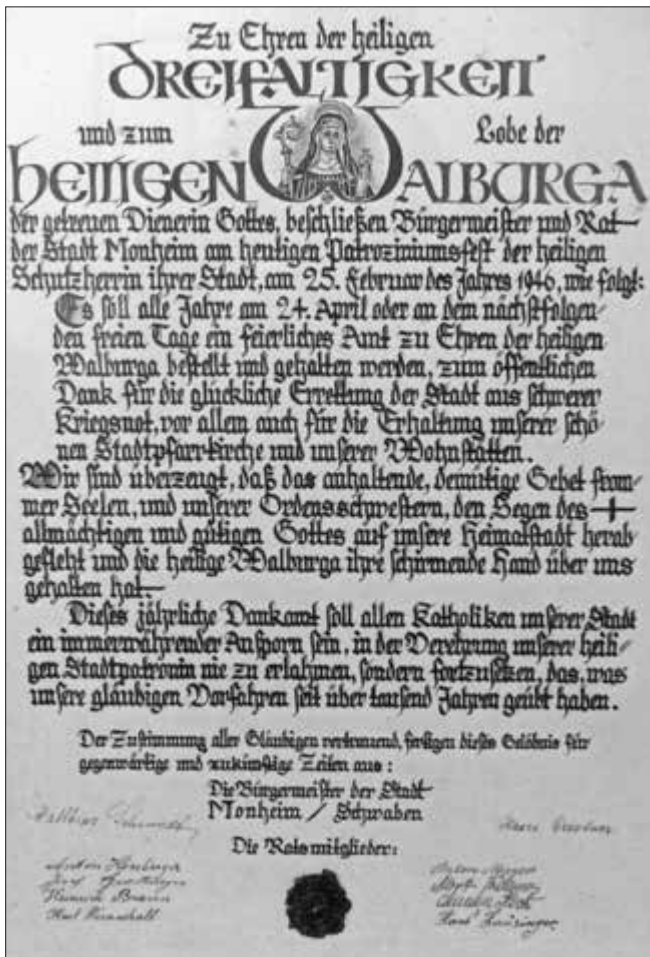 Zu Ehren der heiligen
DREIFALTIGKEIT
und zum Lobe der
HEILIGEN WALBURGA
der getreuen Dienerin Gottes, beschließen Bürgermeister und Rat
der Stadt Monheim am heutigen Patroziniumsfest der heiligen
Schutzherrin ihrer Stadt, am 25. Februar des Jahres 1946, wie folgt:
Es soll alle Jahre am 24. April oder an dem nächstfolgen-
den freien Tage ein feierliches Amt zu Ehren der heiligen
Walburga bestellt und gehalten werden, zum öffentlichen
Dank für die glückliche Errettung der Stadt aus schwerer
Kriegsnot, vor allem auch für die Erhaltung unserer schö-
nen Stadtpfarrkirche und unserer Wohnstätten.
Wir sind überzeugt, daß das anhaltende, demütige Gebet from-
mer Seelen, und unserer Ordensschwestern, den Segen des
allmächtigen und gütigen Gottes auf unsere Heimatstadt herab
gefleht und die heilige Walburga ihre schirmende Hand über uns
gehalten hat.
Dieses jährliche Dankamt soll allen Katholiken unserer Stadt
ein immerwährender Ansporn sein, in der Verehrung unserer heili-
gen Stadtpatronin nie zu erlahmen, sondern fortzusetzen, das, was
unsere gläubigen Vorfahren seit über tausend Jahren geübt haben.
Der Zustimmung aller Gläubigen vertrauend, fertigen dieses Gelöbnis für
gegenwärtige und zukünftige Zeiten aus:
Die Bürgermeister der Stadt
Monheim / Schwaben
Die Ratsmitglieder:
Anton
Josef
Heinrich Braun
Karl
Hans